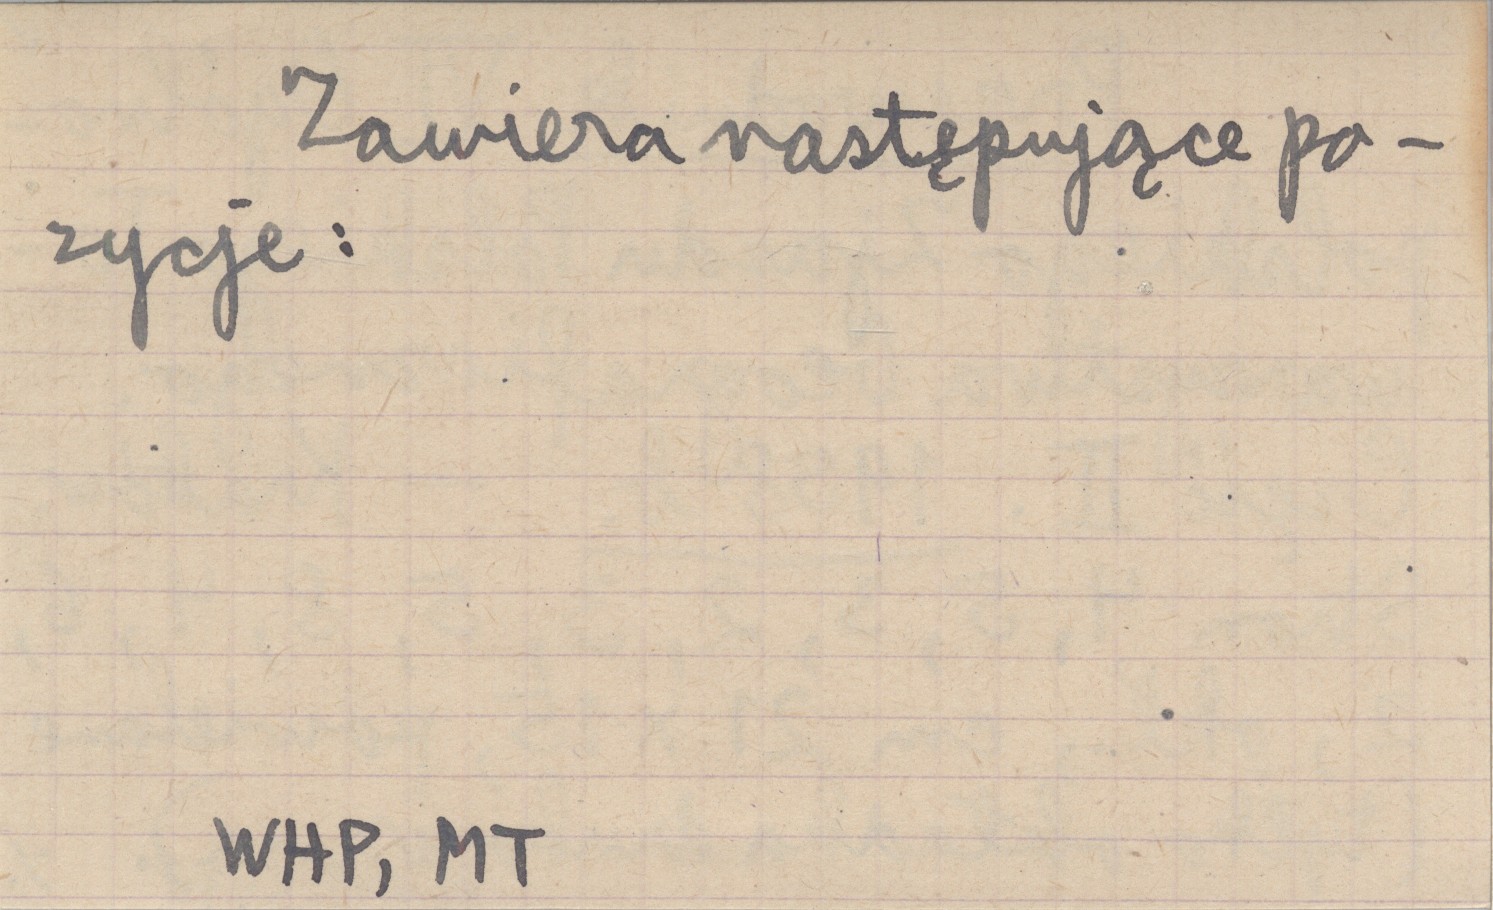 Zawiera następujące po-
zycje:
WHP, MT